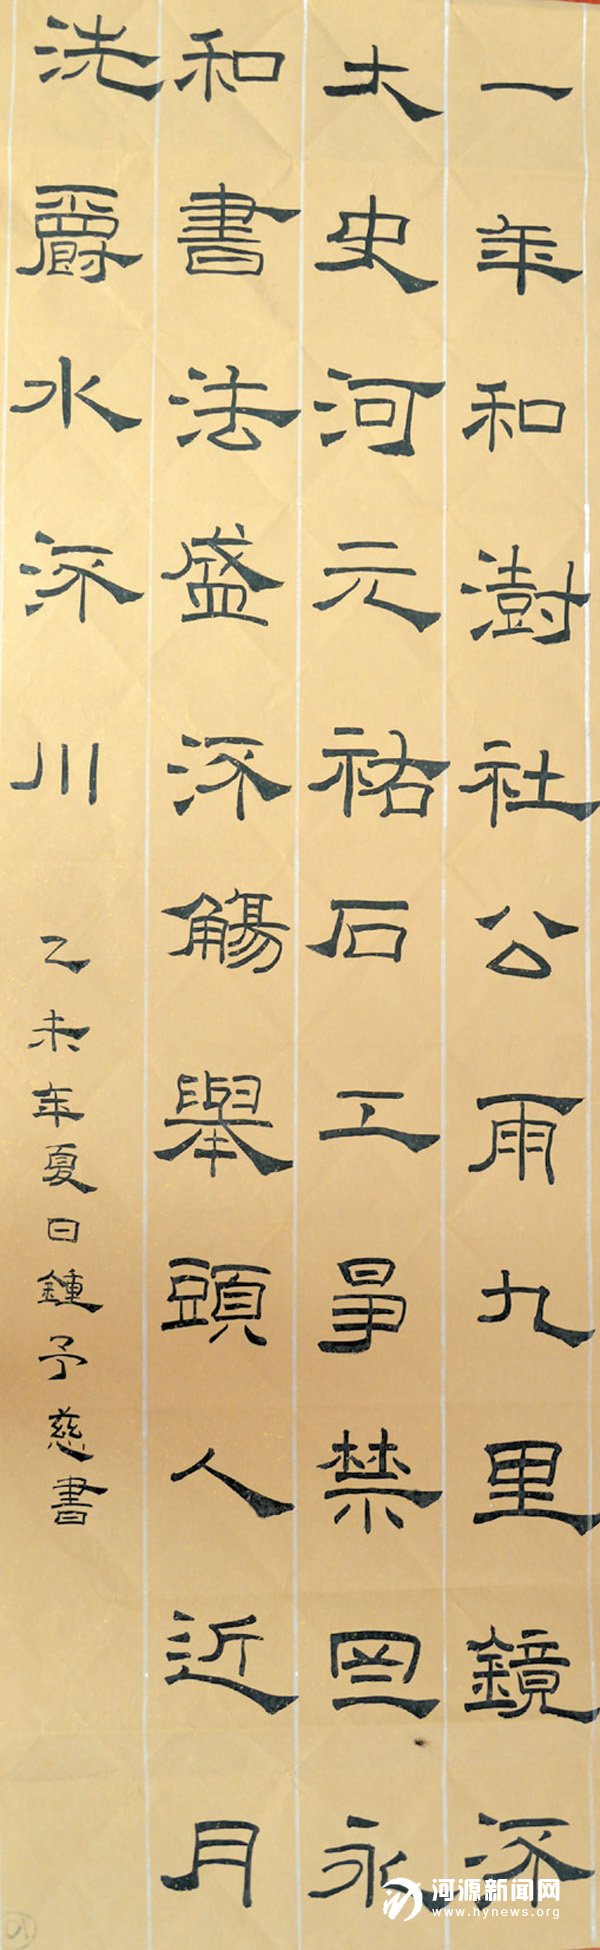 一年和澍社公雨九里鏡流
大史河元祐石工爭禁罔永
和書法盛流觴舉頭人近月
洗爵水流川
乙未年夏日鍾予慈書
河源新闻网
www.hynews.org